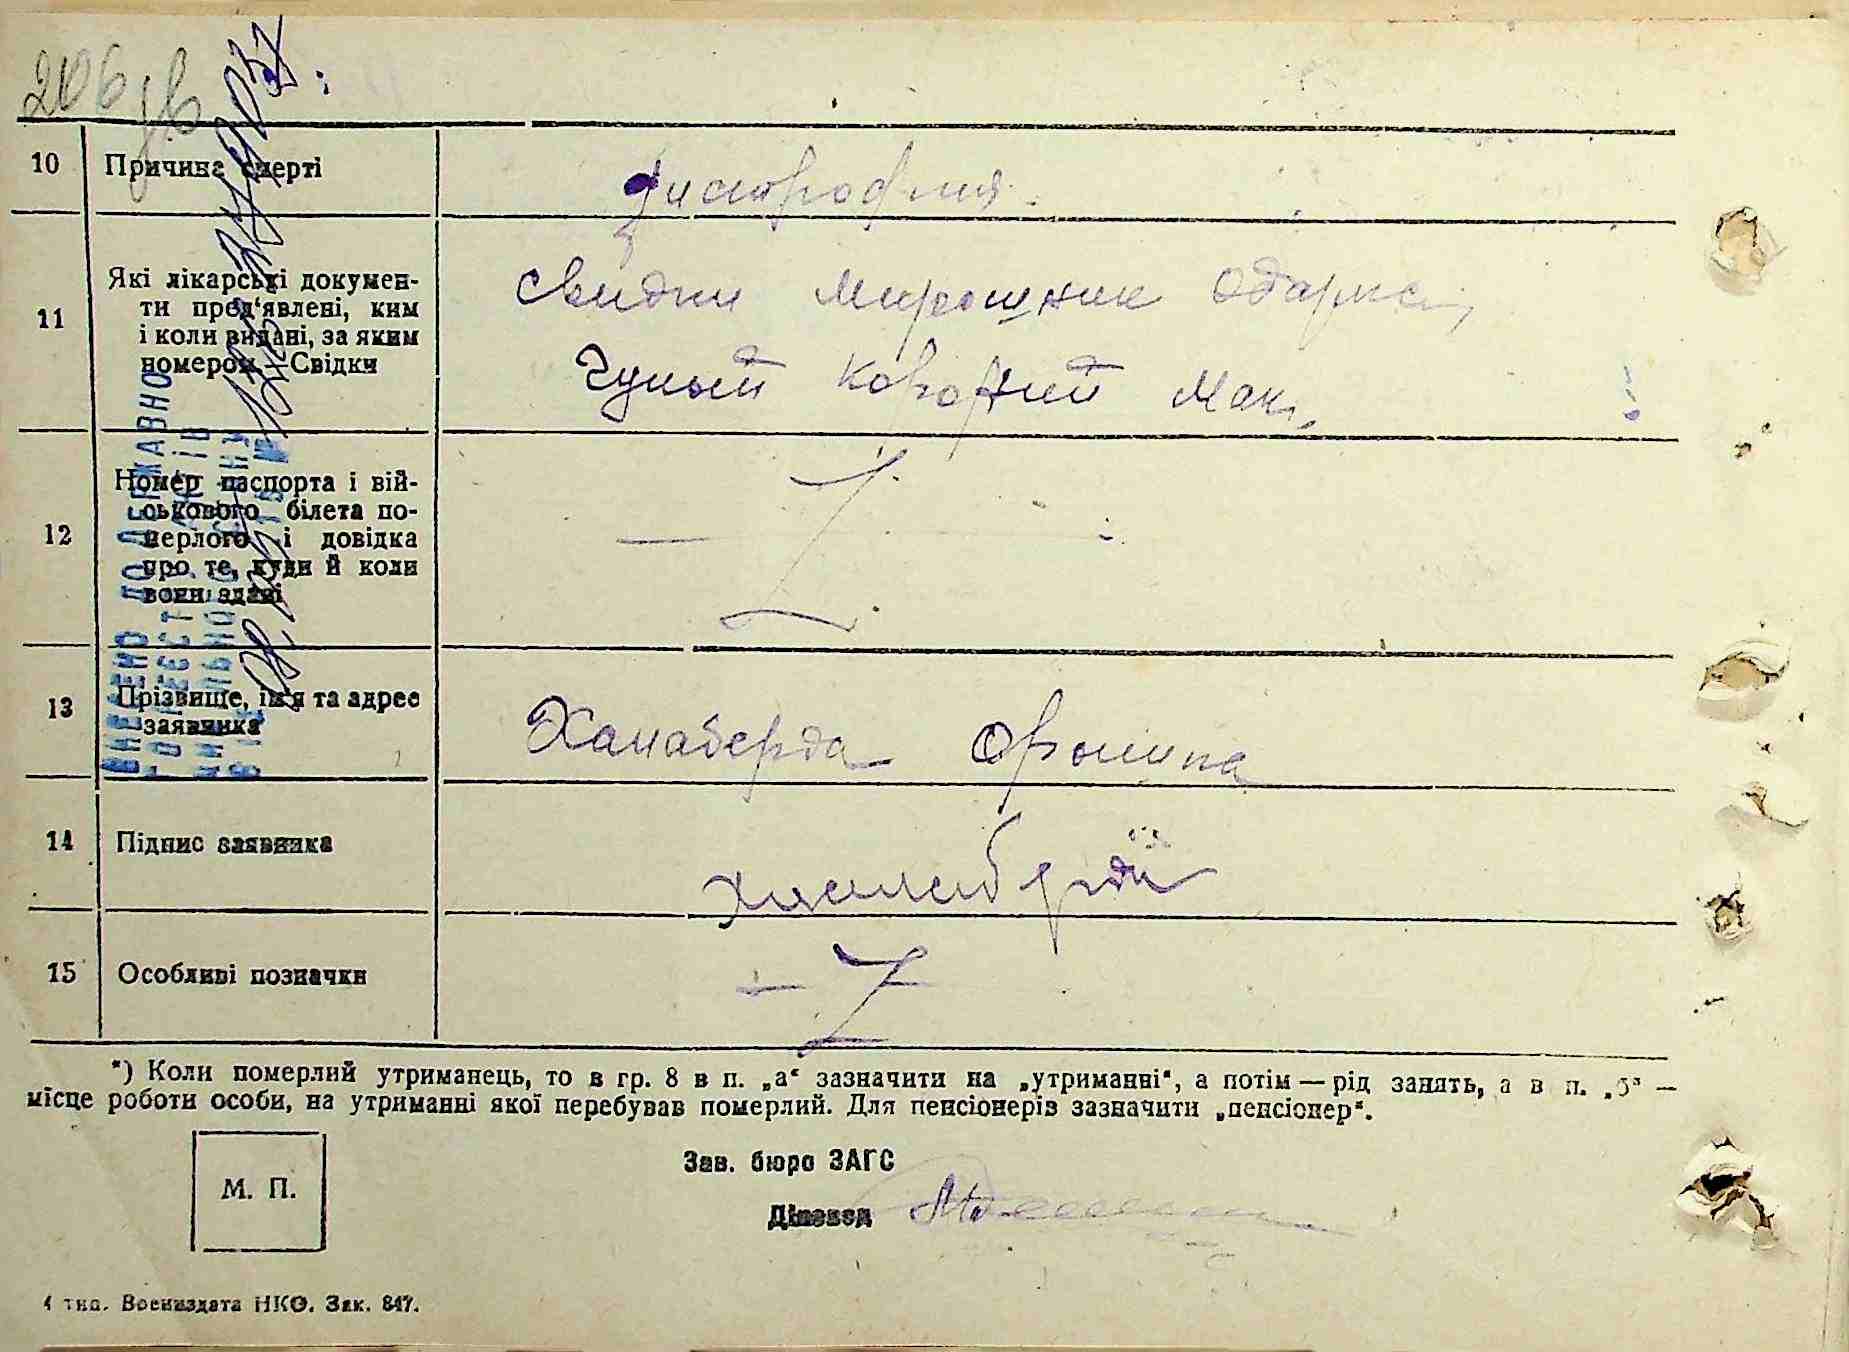 206
10 Причина смерті дистрофия
11 Які лікарські докумен-
ти пред'явлені, ким
і коли видані, за яким
номером.—Свідки
свидки Мирошник Одарка,
Гуньй Корній Мак.
12 Номер паспорта і вій-
ськового білета по-
мерлого і довідка
про те, куди й коли
вони здані
Z
13 Прізвище, ім'я та адрес
заявника
Ханаберда Орынипа
14 Підпис заявника ханаберда
15 Особливі позначки — Z
ВНЕСЕНО ДО ДЕРЖАВНО
ГО РЕЄСТРУ АКТІВ
ЦИВІЛЬНОГО СТАНУ
*) Коли померлий утриманець, то в гр. 8 в п. „а“ зазначити на „утриманні“, а потім — рід занять, а в п. „б“ —
місце роботи особи, на утриманні якої перебував померлий. Для пенсіонерів зазначити „пенсіонер“.
М. П.
Зав. бюро ЗАГС
Діловод
4 тип. Воениздата НКО. Зак. 847.